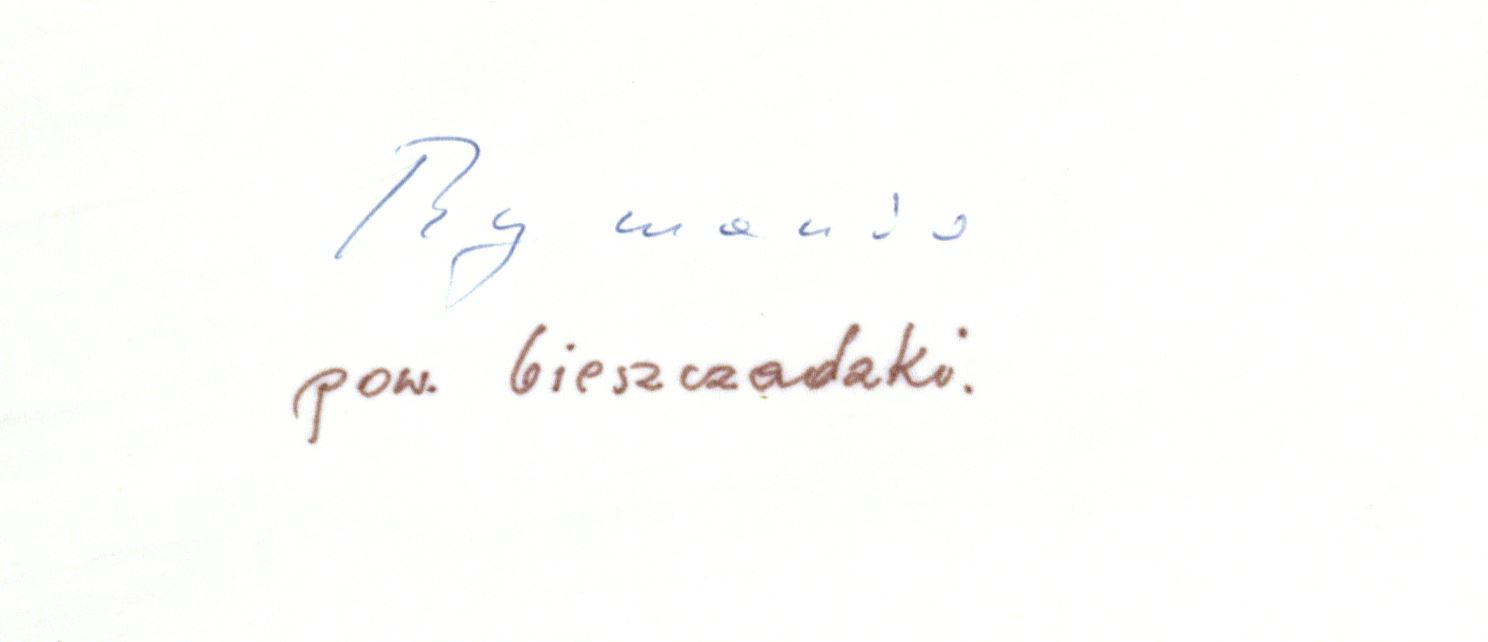 Rymanów
pow. bieszczadzki.